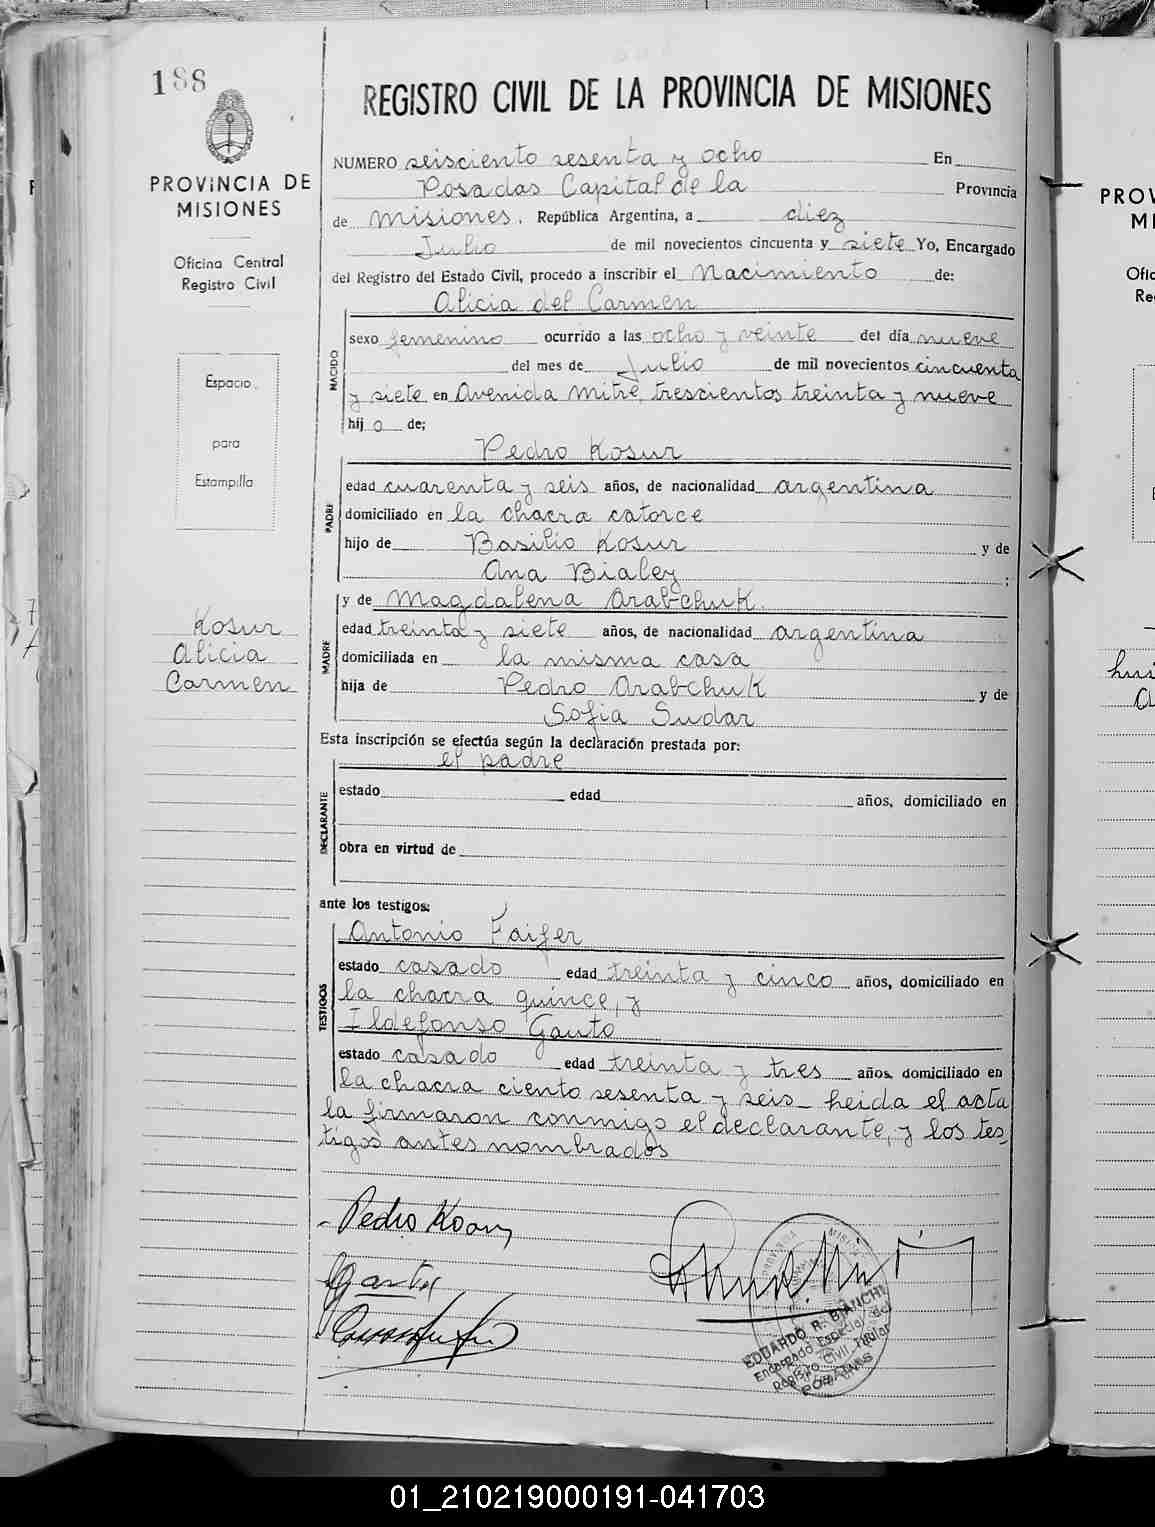 188
PROVINCIA DE
MISIONES
Oficina Central
Registro Civil
Espacio
para
Estampilla
Kosur
Alicia
Carmen
REGISTRO CIVIL DE LA PROVINCIA DE MISIONES
NUMERO seisciento sesenta y ocho En
Posadas Capital de la Provincia
de Misiones. República Argentina, a diez
Julio de mil novecientos cincuenta y siete Yo, Encargado
del Registro del Estado Civil, procedo a inscribir el Nacimiento de:
Alicia del Carmen
NACIDO
sexo femenino ocurrido a las ocho y veinte del día nueve
del mes de Julio de mil novecientos cincuenta
y siete en Avenida Mitre, trescientos treinta y nueve
hija de;
Pedro Kosur
PADRE
edad cuarenta y seis años, de nacionalidad argentina
domiciliado en la chacra catorce
hijo de Basilio Kosur y de
Ana Bialey ;
y de Magdalena Arabchuk.
MADRE
edad treinta y siete años, de nacionalidad argentina
domiciliada en la misma casa
hija de Pedro Arabchuk y de
Sofia Sudar
Esta inscripción se efectúa según la declaración prestada por:
el padre
DECLARANTE
estado edad años, domiciliado en
obra en virtud de
ante los testigos:
Antonio Faifer
TESTIGOS
estado casado edad treinta y cinco años, domiciliado en
la chacra quince, y
Ildefonso Gauto
estado casado edad treinta y tres años, domiciliado en
la chacra ciento sesenta y seis_ heida el acta
la firmaron conmigo el declarante, y los tes-
tigos antes nombrados
Pedro
EDUARDO R. BIANCHI
Encargado Especial del
Registro Civil Titular
POSADAS
PROV
MI
Ofic
Re
01_210219000191-041703